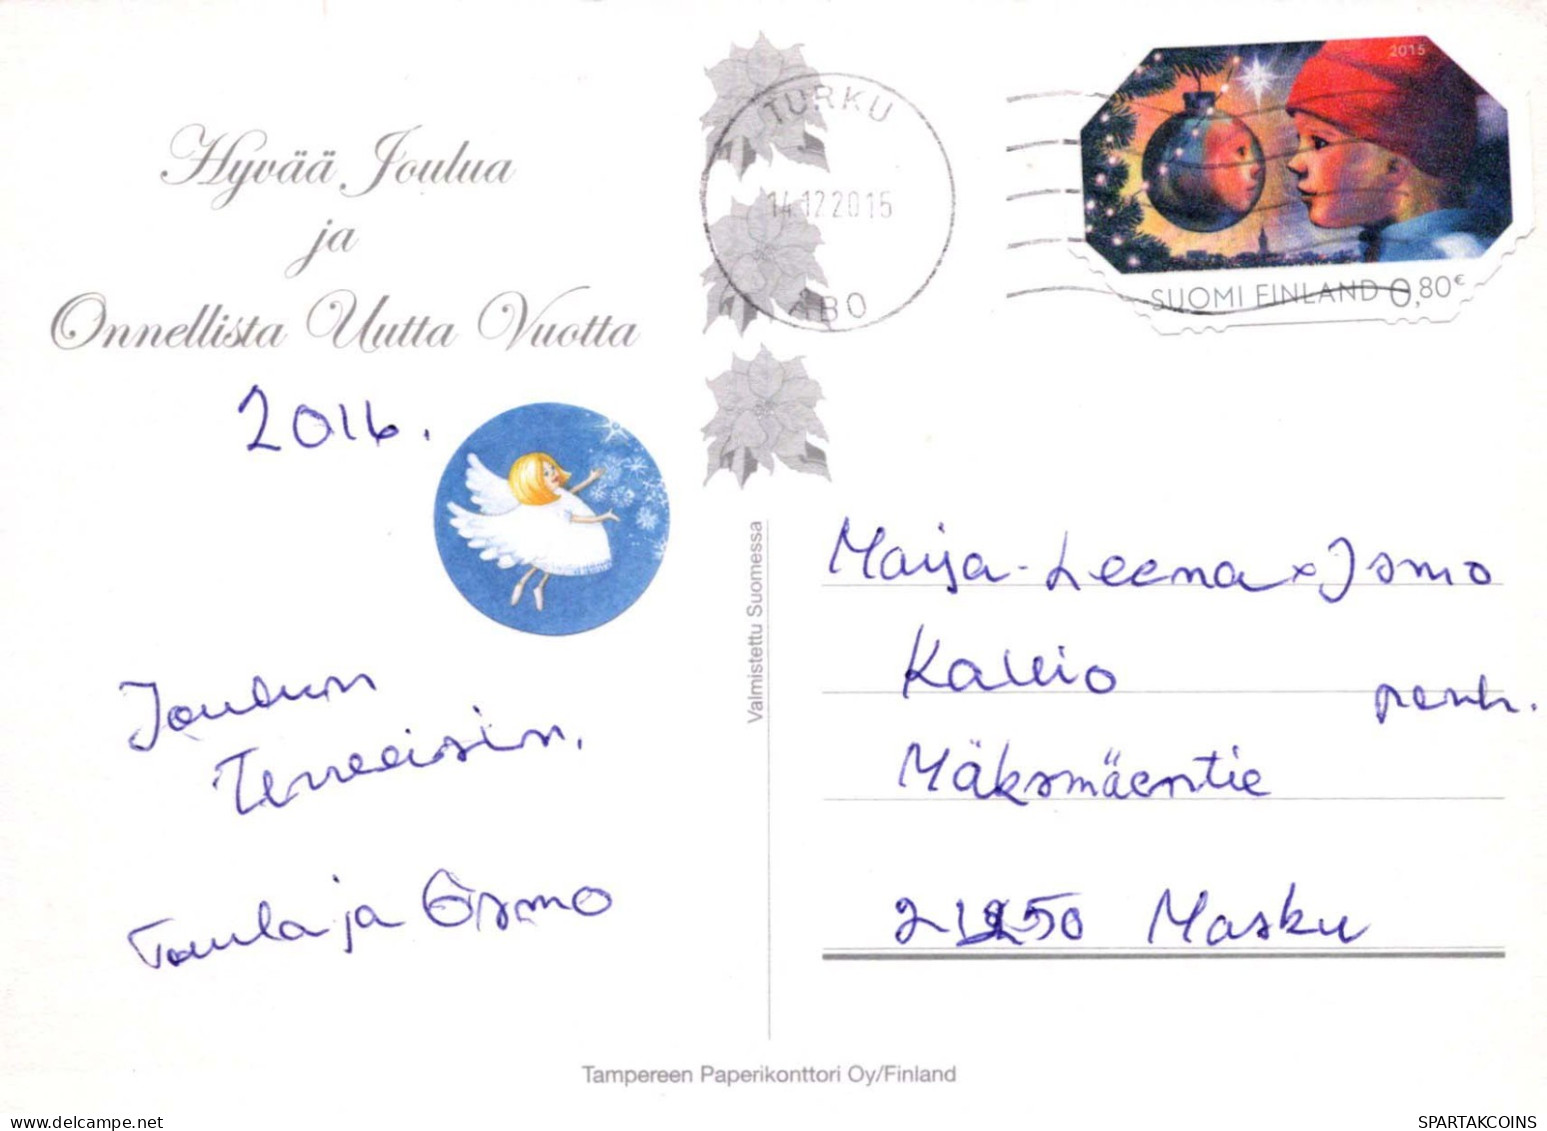 Hyvää Joulua
ja
Onnellista Uutta Vuotta
2016.
Joulun
Terveisin,
Tuula ja Osmo
TURKU
14.12.2015
ÅBO
2015
SUOMI FINLAND 0,80€
Valmistettu Suomessa
Maija-Leena & Ismo
Kallio
perh.
Mäksmäentie
21250 Masku
Tampereen Paperikonttori Oy/Finland
SPARTAKCOINS